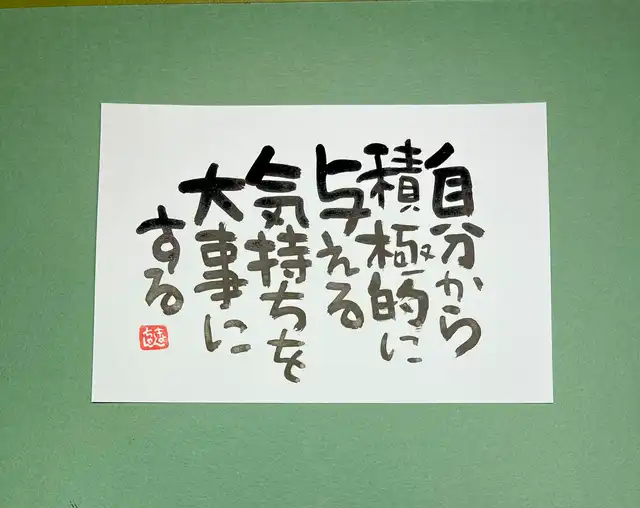 自分から
積極的に
与える
気持ちを
大事に
する